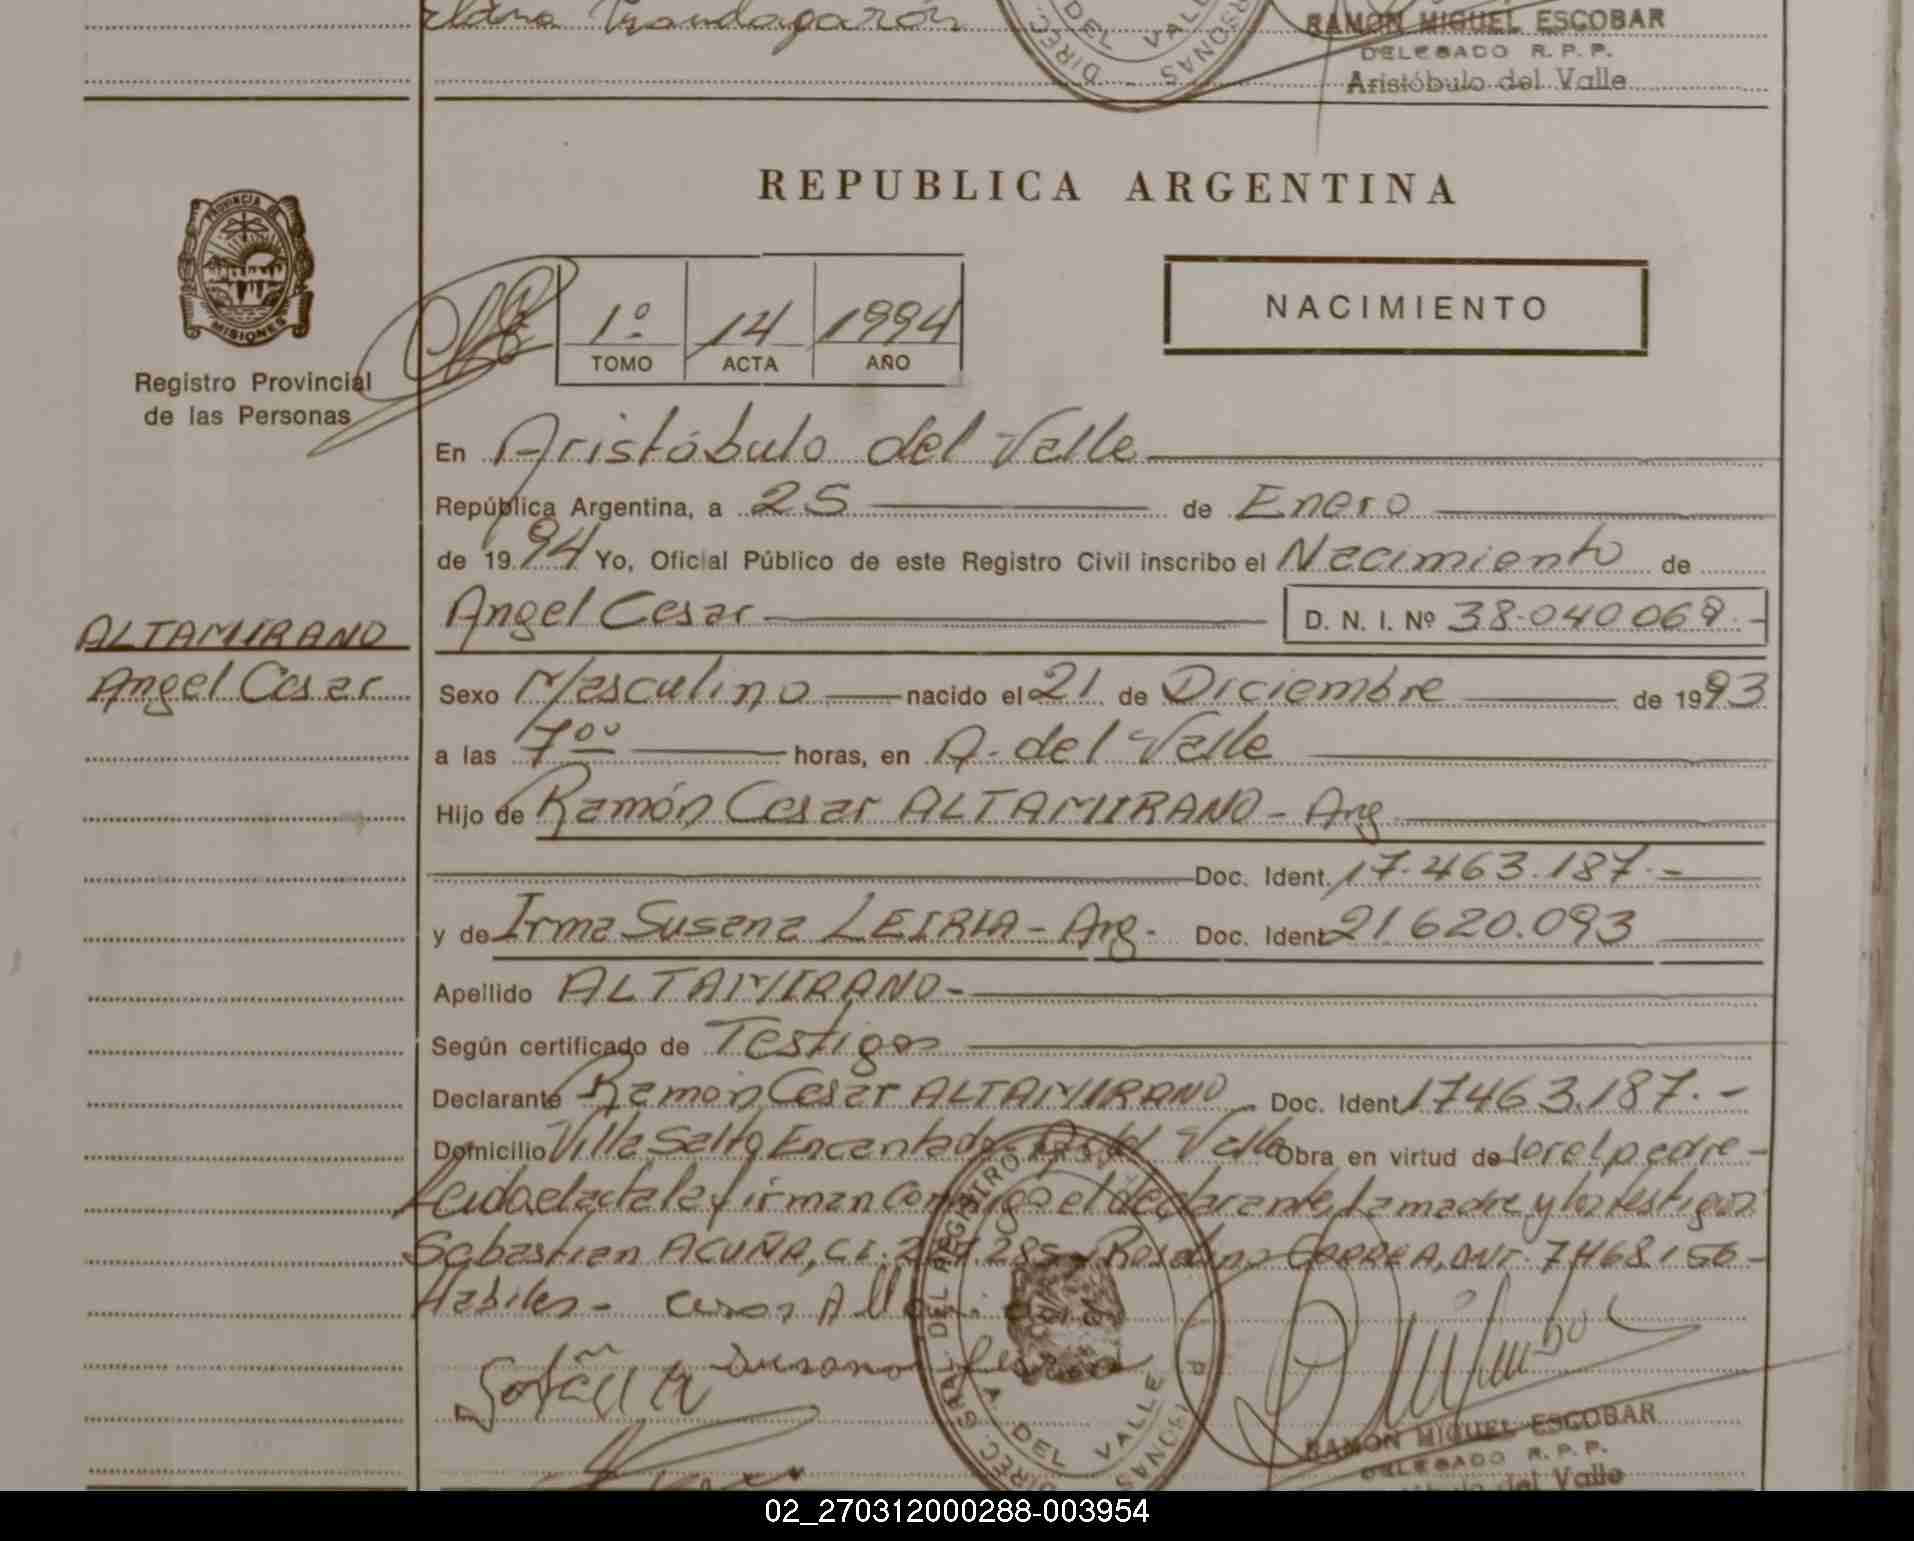 RAMON MIGUEL ESCOBAR
DELEGADO R. P. P.
Aristóbulo del Valle
DIREC. DEL VALLE PERSONAS
REPUBLICA ARGENTINA
PROVINCIA DE MISIONES
Registro Provincial
de las Personas
1º 14 1994
TOMO ACTA AÑO
NACIMIENTO
En Aristóbulo del Valle
República Argentina, a 25 de Enero
de 1994 Yo, Oficial Público de este Registro Civil inscribo el Nacimiento de
Angel Cesar D. N. I. Nº 38.040.068.-
ALTAMIRANO
Angel Cesar
Sexo Masculino nacido el 21 de Diciembre de 1993
a las 7 00 horas, en A. del Valle
Hijo de Ramón Cesar ALTAMIRANO - Arg
Doc. Ident. 17.463.187.-
y de Irma Susana LEIRIA - Arg. Doc. Ident 21620.093
Apellido ALTAMIRANO-
Según certificado de Testigos
Declarante Ramón Cesar ALTAMIRANO Doc. Ident 17463.187.-
Domicilio Villa Salto Encantado A. del Valle Obra en virtud de ser el padre-
Leida el acta la firman conmigo el declarante, la madre y los testigos
Sebastian ACUÑA, C.I. Rosalino CORREA, DNI. 7.468.156-
Habiles-
DIREC. GRAL. DEL REGISTRO
A. DEL VALLE
RAMON MIGUEL ESCOBAR
DELEGADO R. P. P.
del Valle
02_270312000288-003954